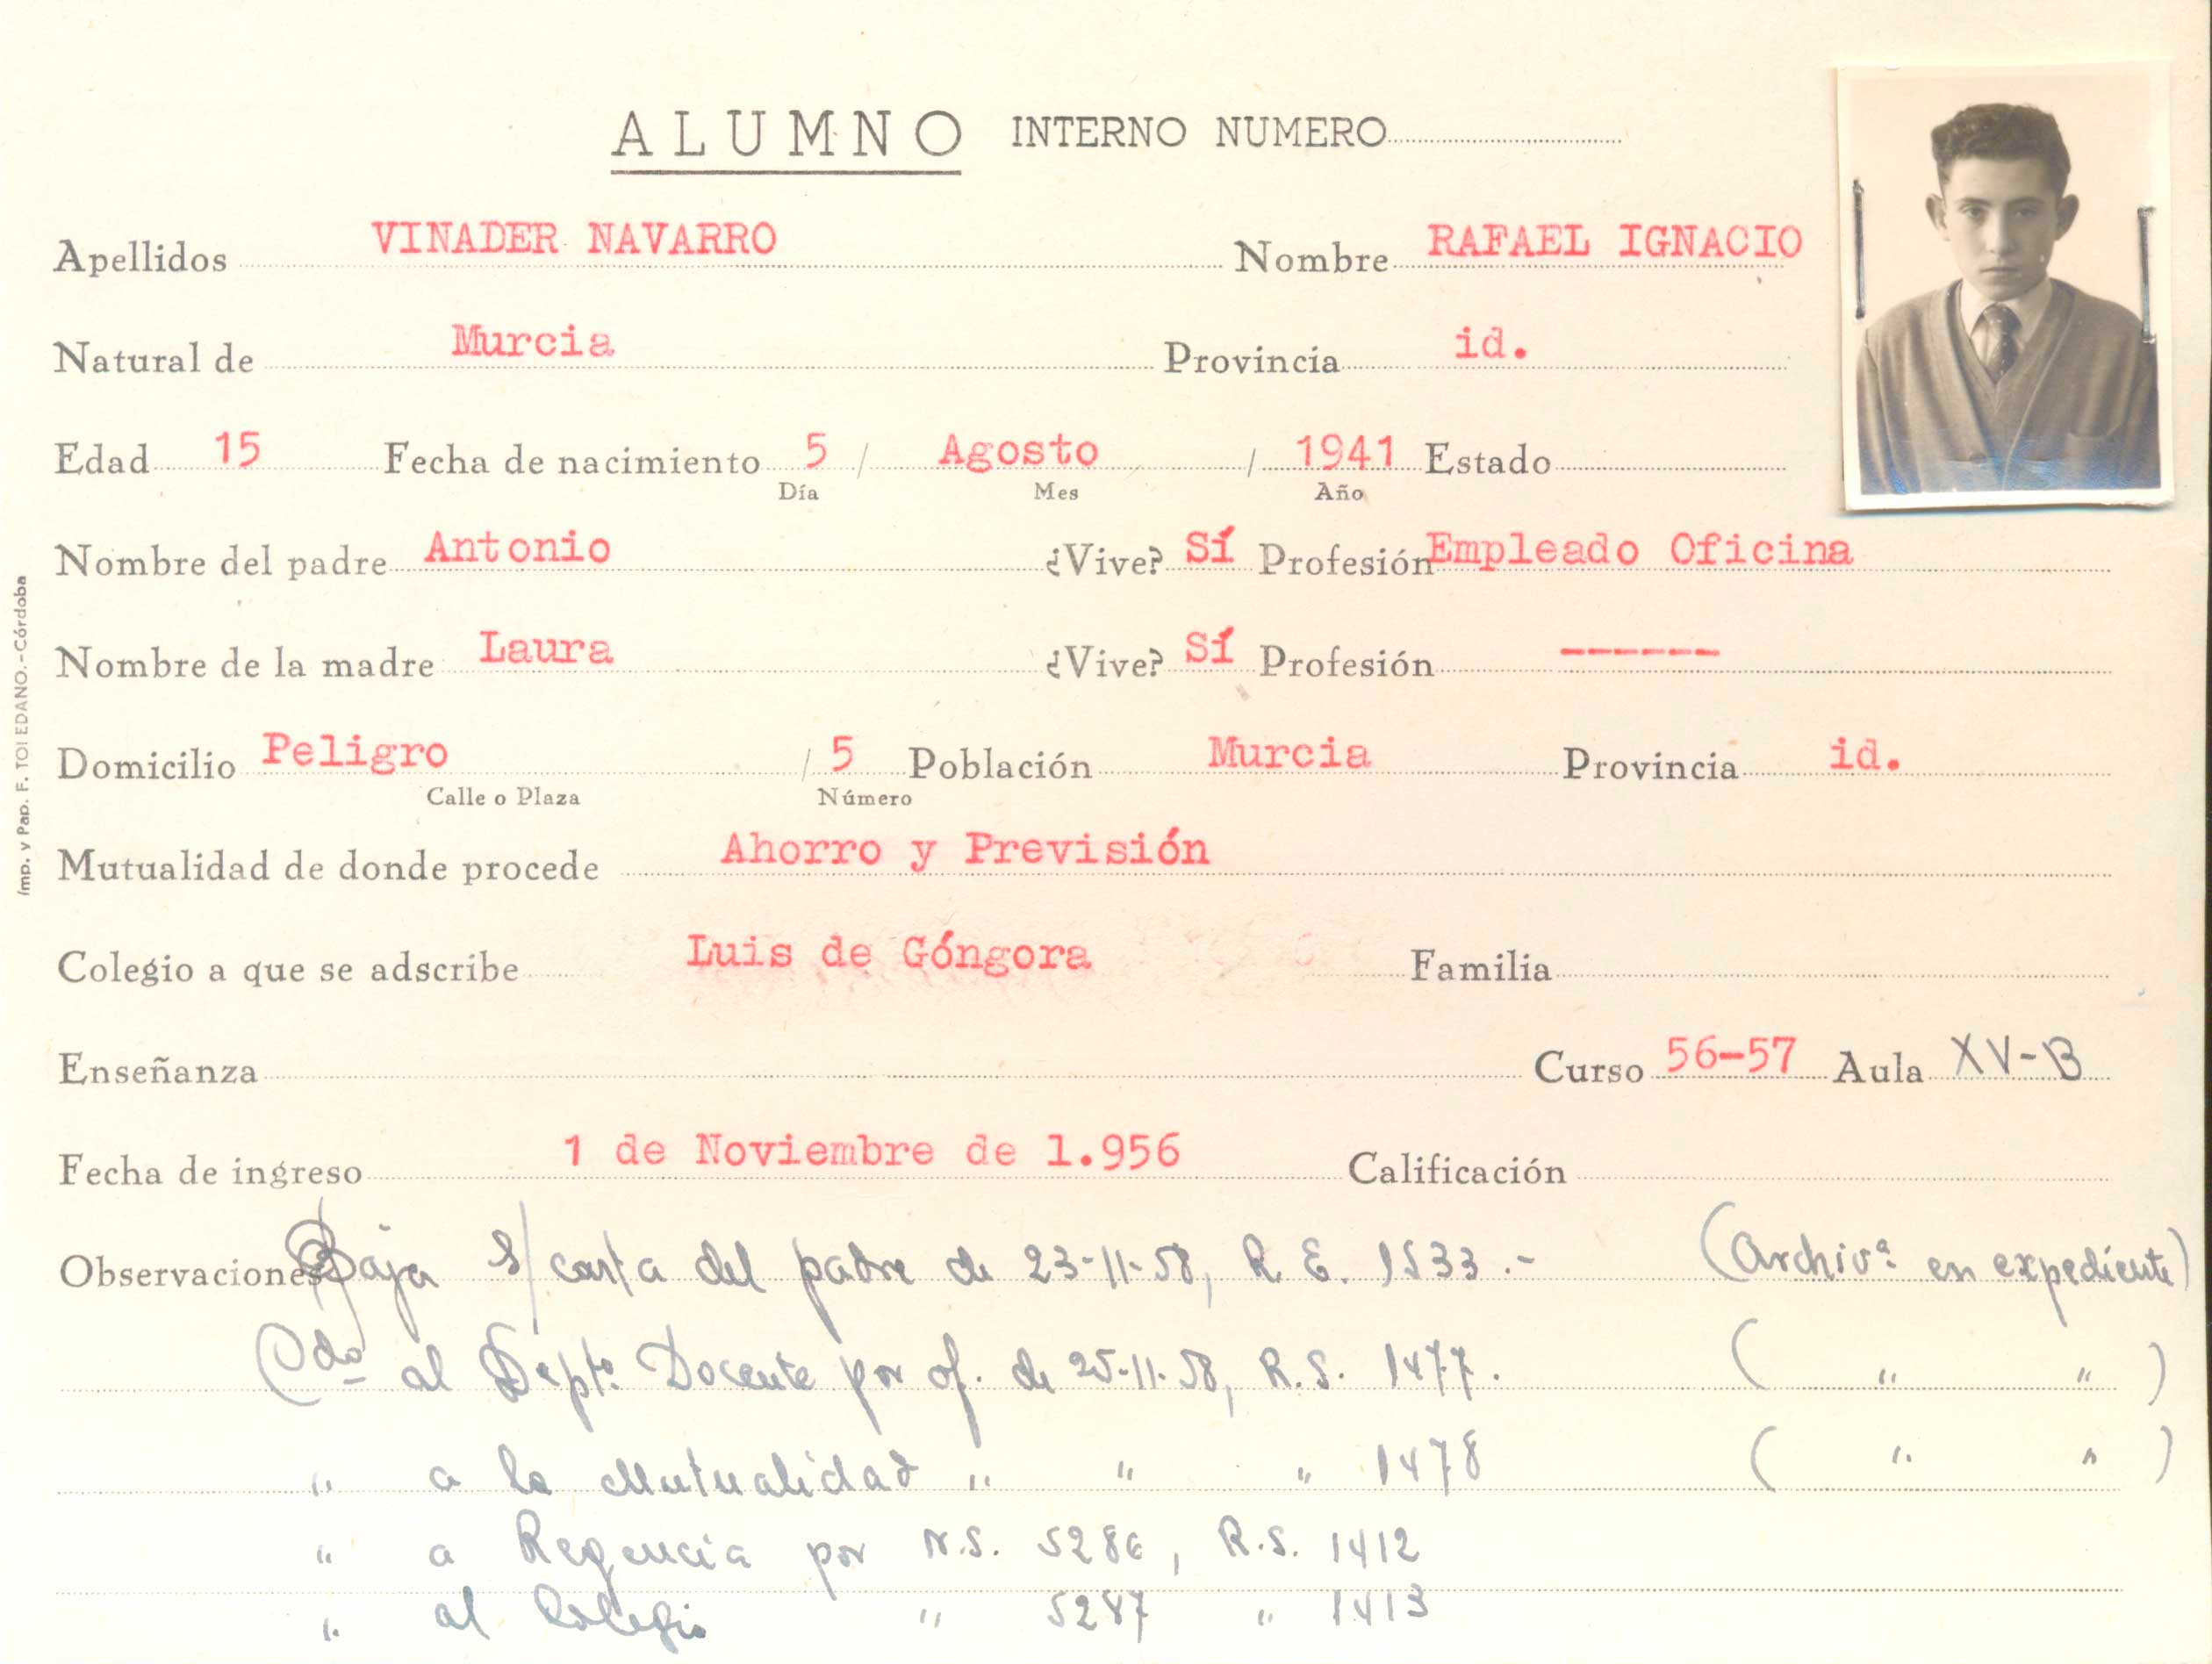 ALUMNO INTERNO NUMERO
Apellidos VINADER NAVARRO Nombre RAFAEL IGNACIO
Natural de Murcia Provincia id.
Edad 15 Fecha de nacimiento 5 / Agosto / 1941 Estado
Día Mes Año
Nombre del padre Antonio ¿Vive? Sí Profesión Empleado Oficina
Nombre de la madre Laura ¿Vive? Sí Profesión ------
Domicilio Peligro / 5 Población Murcia Provincia id.
Calle o Plaza Número
Mutualidad de donde procede Ahorro y Previsión
Colegio a que se adscribe Luis de Góngora Familia
Enseñanza Curso 56-57 Aula XV-B
Fecha de ingreso 1 de Noviembre de 1.956 Calificación
Observaciones Baja s/ carta del padre de 23-11-58, R. E. 1533.- (Archivª en expediente)
Cdo al Deptº Docente por of. de 25-11-58, R.S. 1477. ( " " )
" a la Mutualidad " " " 1478 ( " " )
" a Regencia por N.S. 5286, R.S. 1412
" al Colegio " 5287 " 1413
Imp. y Pap. F. TOLEDANO.-Córdoba